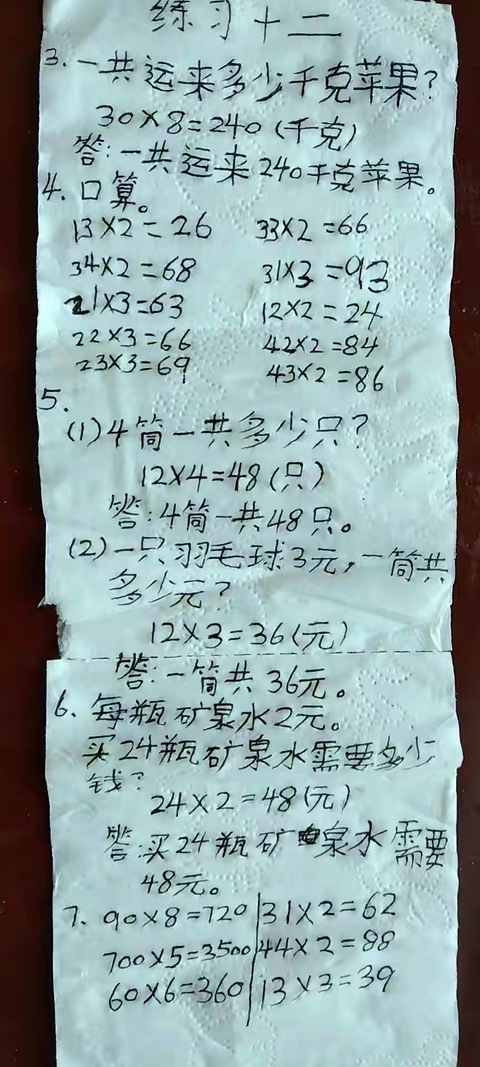 练习十二
3. 一共运来多少千克苹果?
30×8=240(千克)
答:一共运来240千克苹果。
4. 口算。
13×2=26 33×2=66
34×2=68 31×3=93
21×3=63 12×2=24
22×3=66 42×2=84
23×3=69 43×2=86
5.
(1)4筒一共多少只?
12×4=48(只)
答:4筒一共48只。
(2)一只羽毛球3元,一筒共
多少元?
12×3=36(元)
答:一筒共36元。
6. 每瓶矿泉水2元。
买24瓶矿泉水需要多少
钱?
24×2=48(元)
答:买24瓶矿泉水需要
48元。
7. 90×8=720 31×2=62
700×5=3500 44×2=88
60×6=360 13×3=39